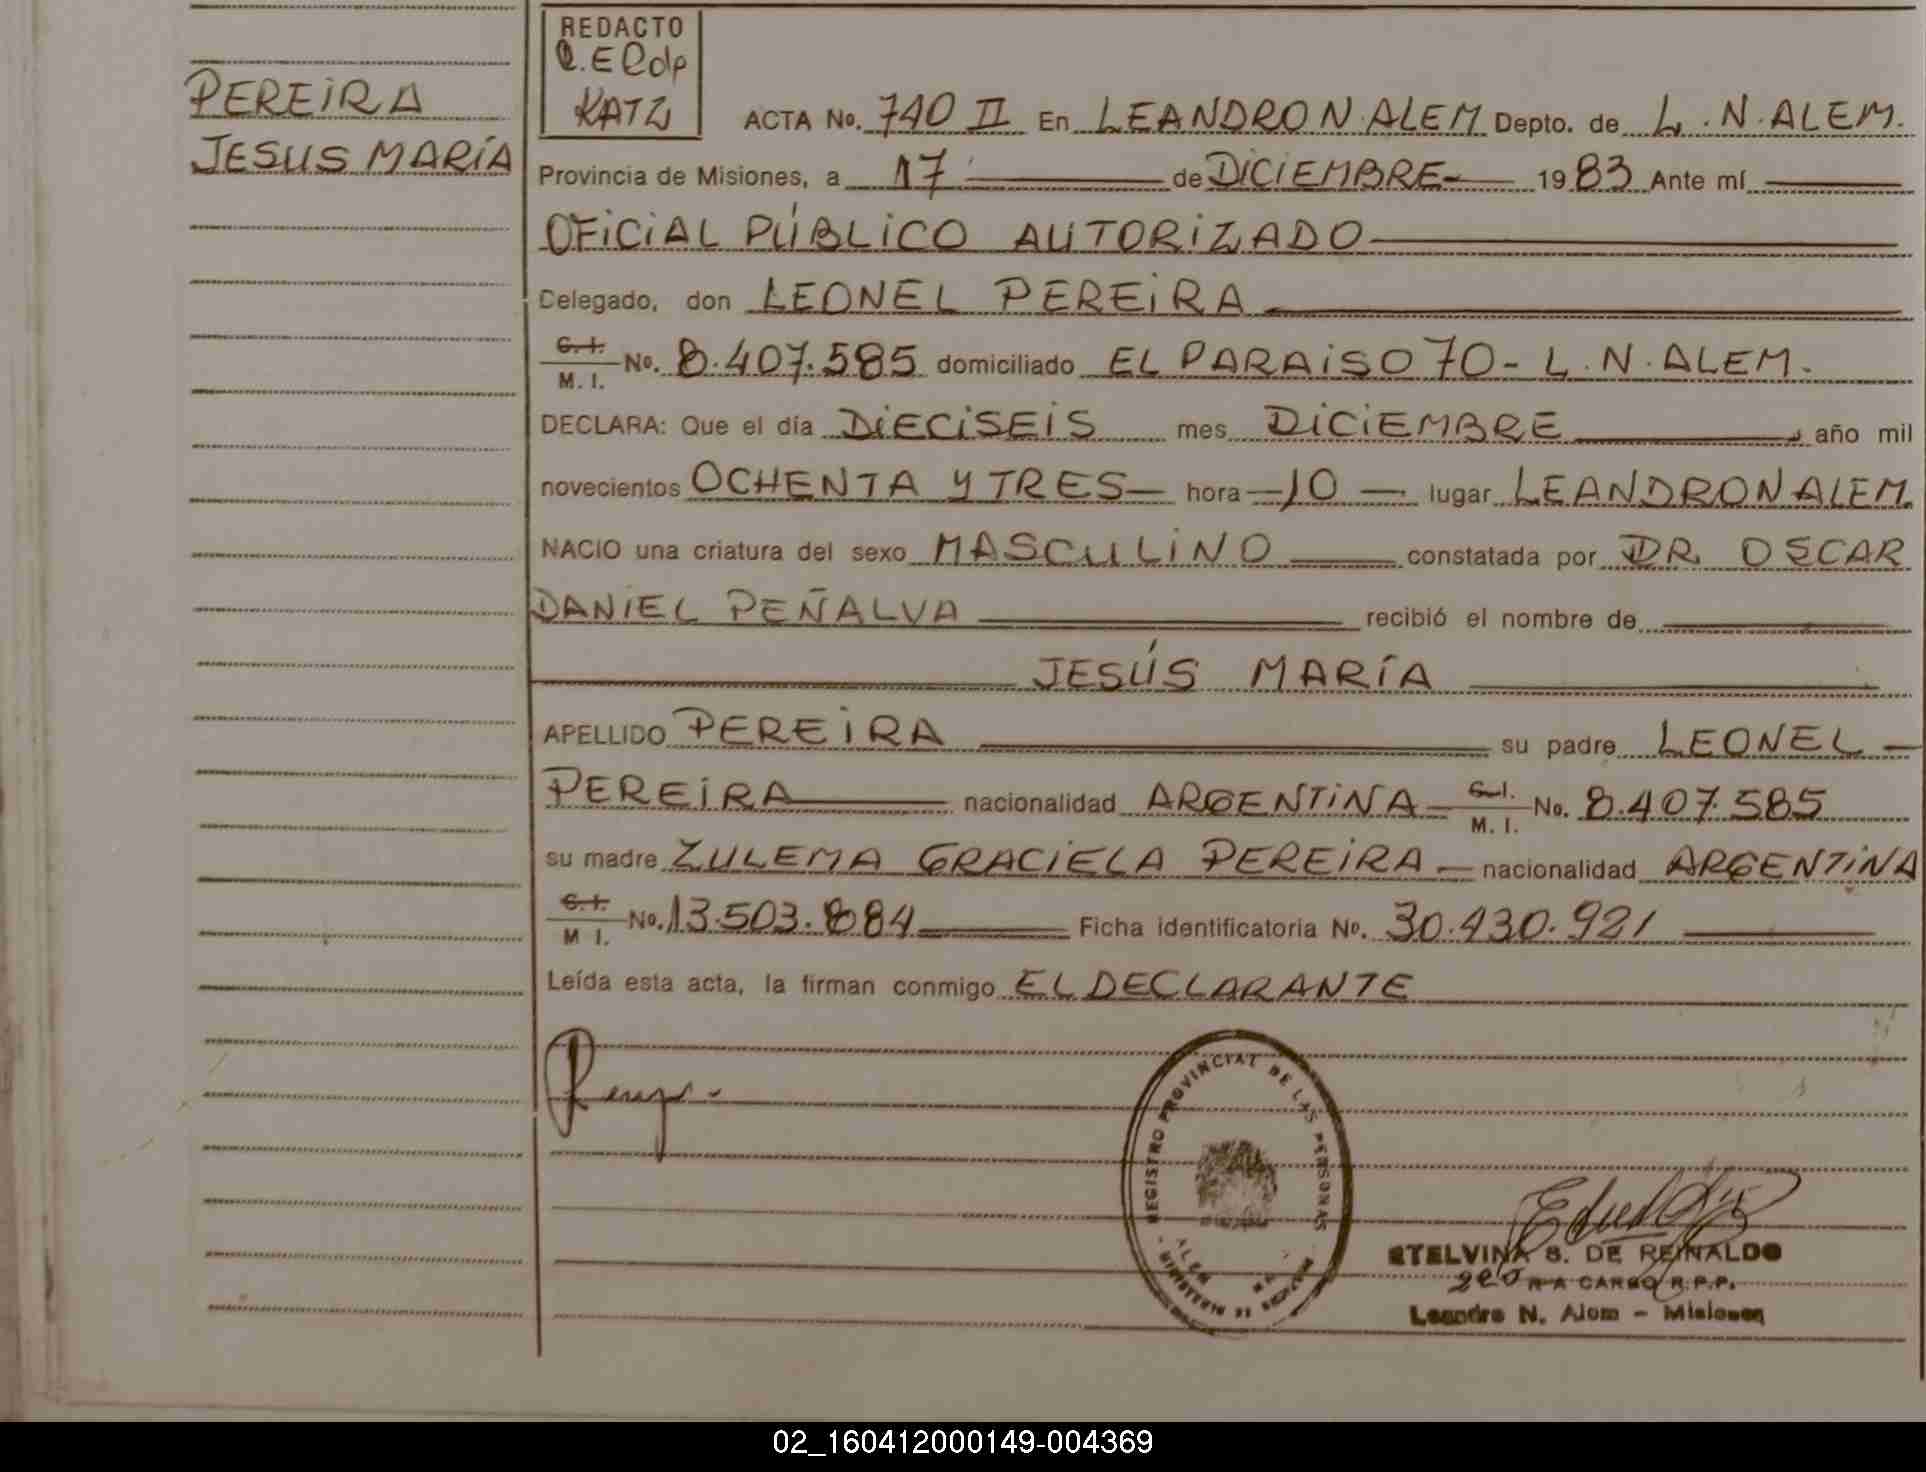 PEREIRA
JESUS MARÍA
REDACTO
KATZ
ACTA No. 740 II En LEANDRO N. ALEM Depto. de L. N. ALEM.
Provincia de Misiones, a 17 de DICIEMBRE 1983 Ante mí
OFICIAL PÚBLICO AUTORIZADO
Delegado, don LEONEL PEREIRA
C. I.
M. I. No. 8.407.585 domiciliado EL PARAISO 70 - L. N. ALEM.
DECLARA: Que el día DIECISEIS mes DICIEMBRE, año mil
novecientos OCHENTA Y TRES hora 10 lugar LEANDRO N ALEM.
NACIO una criatura del sexo MASCULINO constatada por DR. OSCAR
DANIEL PEÑALVA recibió el nombre de
JESÚS MARÍA
APELLIDO PEREIRA su padre LEONEL
PEREIRA nacionalidad ARGENTINA C. I. M. I. No. 8.407.585
su madre ZULEMA GRACIELA PEREIRA nacionalidad ARGENTINA
C. I.
M I. No. 13.503.884 Ficha identificatoria No. 30.430.921
Leída esta acta, la firman conmigo EL DECLARANTE
REGISTRO PROVINCIAL DE LAS PERSONAS
ALEM
ETELVINA S. DE REINALDO
A CARGO R.P.P.
Leandro N. Alem - Misiones
02_160412000149-004369